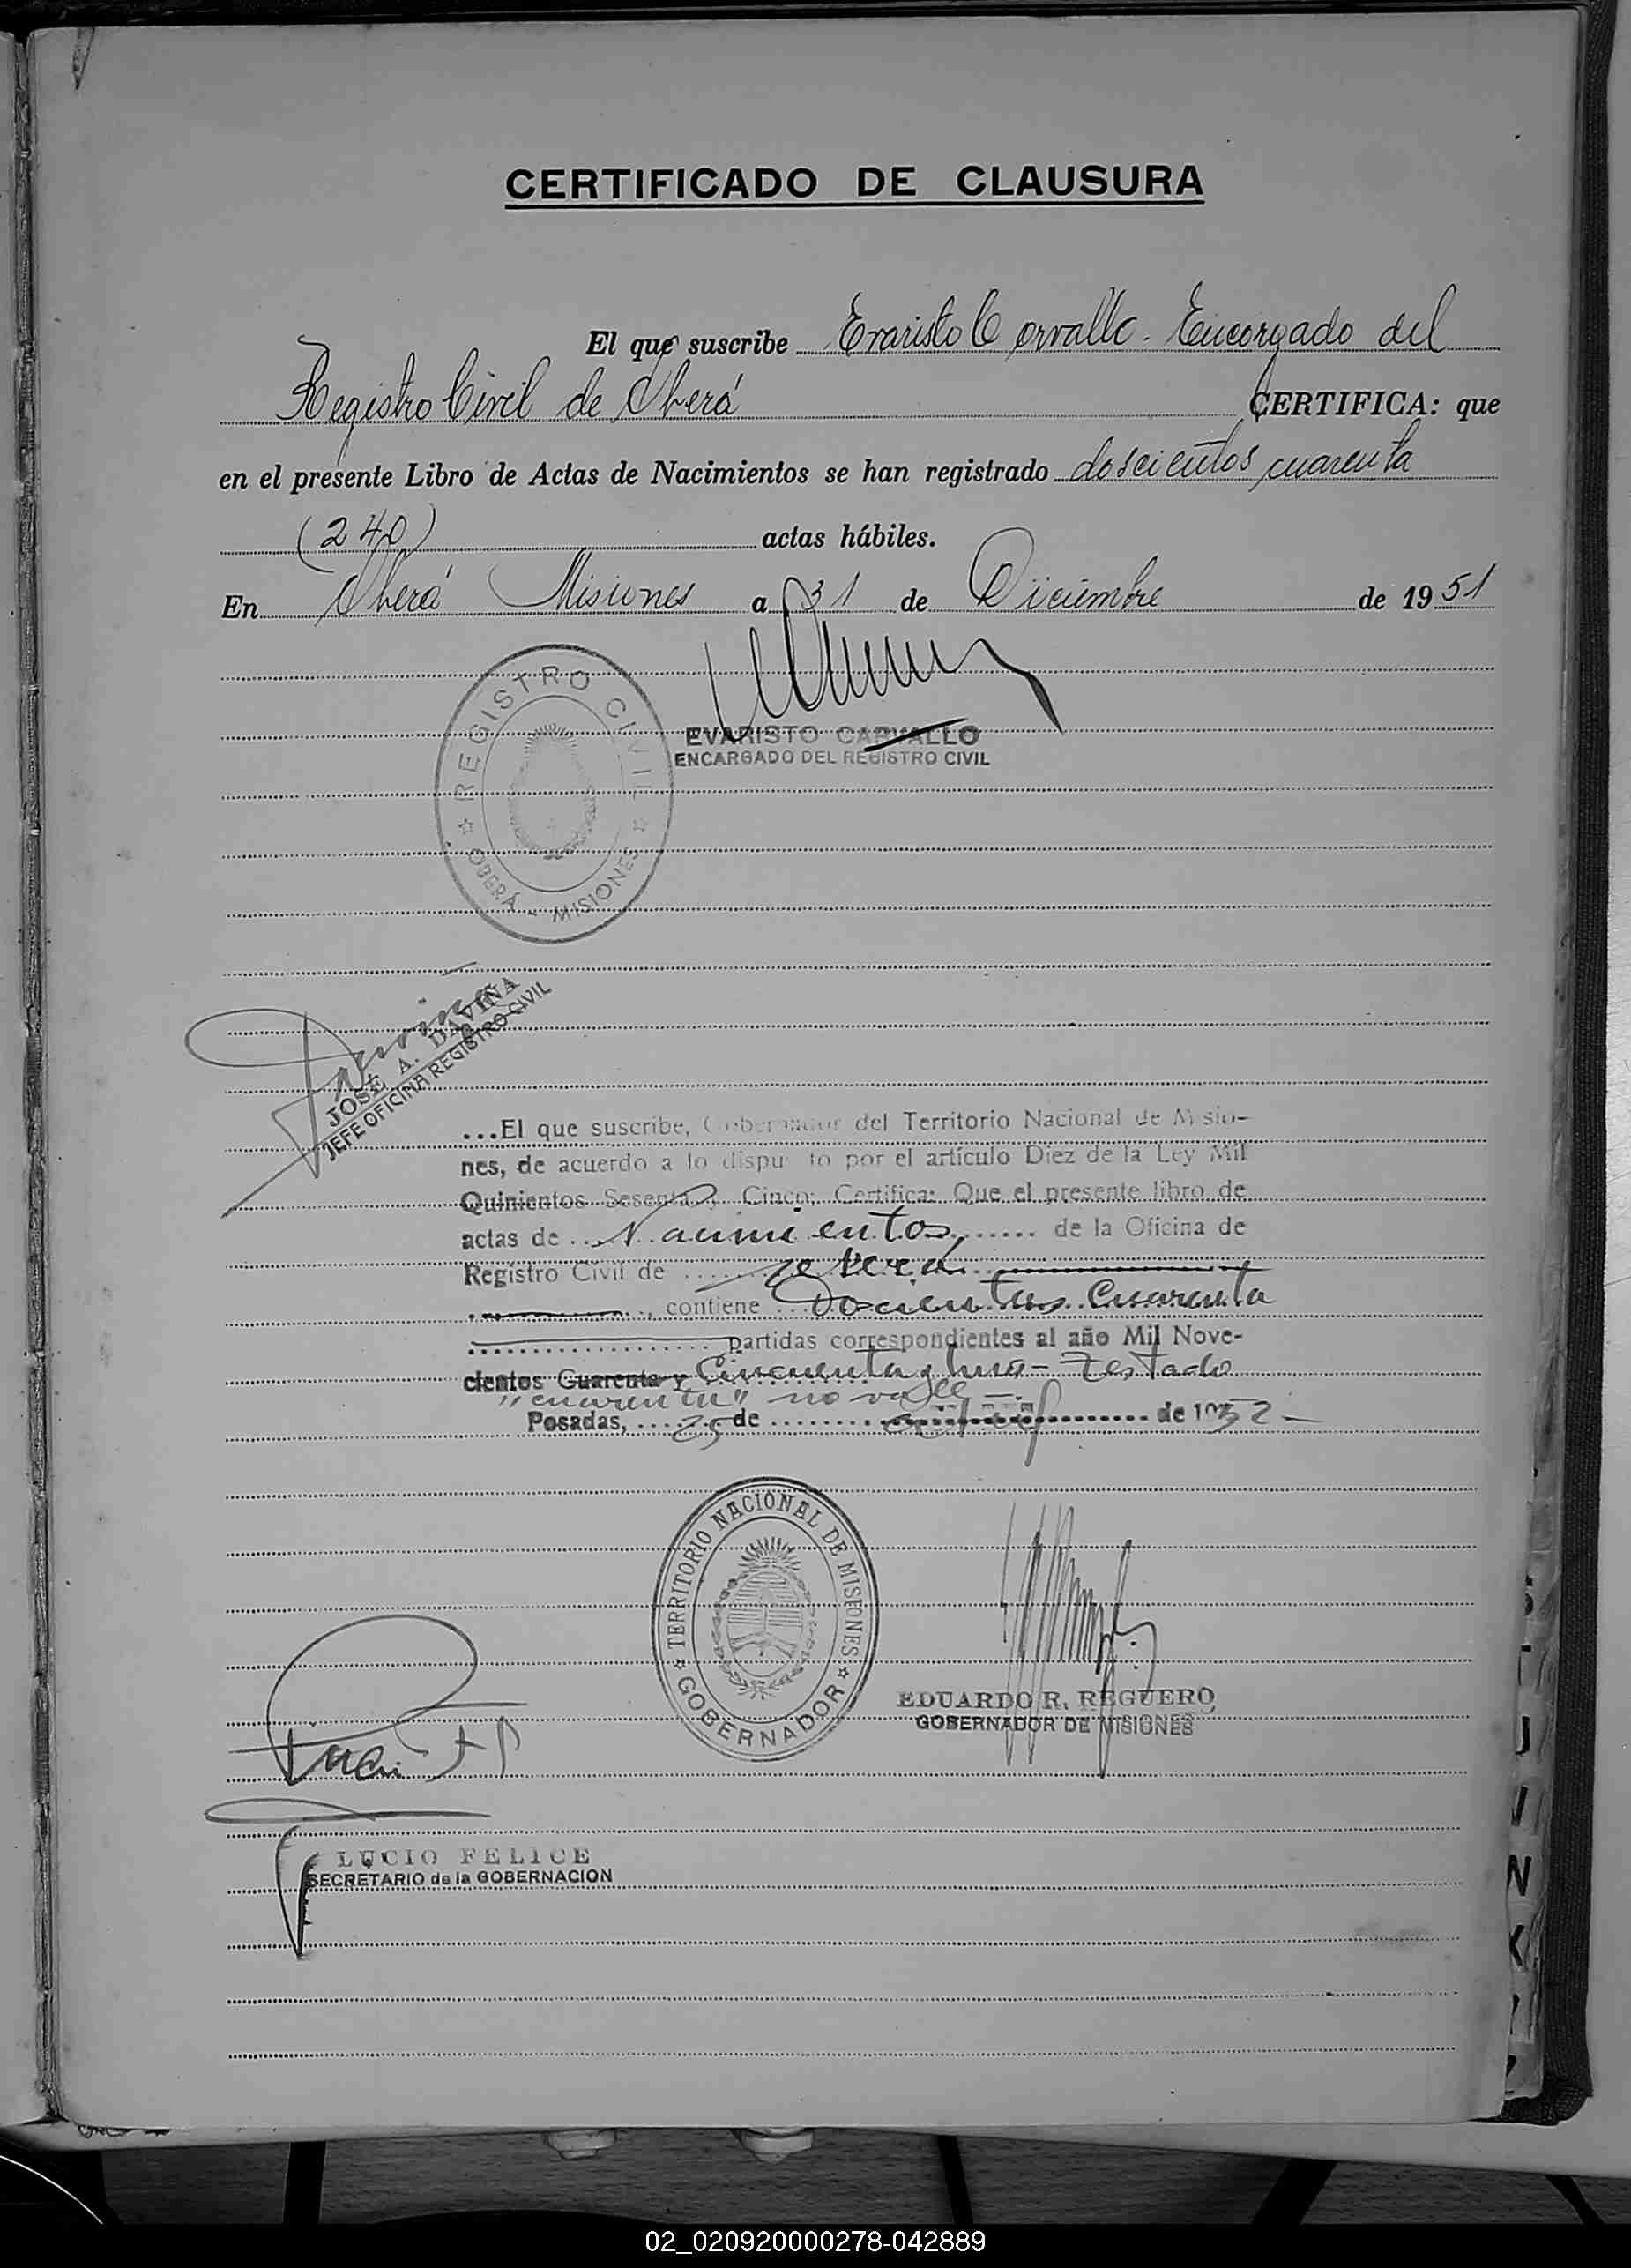 CERTIFICADO DE CLAUSURA
El que suscribe Evaristo Carvallo. Encargado del
Registro Civil de Oberá CERTIFICA: que
en el presente Libro de Actas de Nacimientos se han registrado doscientos cuarenta
(240) actas hábiles.
En Oberá Misiones a 31 de Diciembre de 1951
REGISTRO CIVIL
OBERÁ - MISIONES
EVARISTO CARVALLO
ENCARGADO DEL REGISTRO CIVIL
JOSÉ A. DAVIÑA
JEFE OFICINA REGISTRO CIVIL
...El que suscribe, Gobernador del Territorio Nacional de Misio-
nes, de acuerdo a lo dispuesto por el artículo Diez de la Ley Mil
Quinientos Sesenta y Cinco; Certifica: Que el presente libro de
actas de Nacimientos de la Oficina de
Registro Civil de Oberá
contiene Doscientos Cuarenta
partidas correspondientes al año Mil Nove-
cientos Cuarenta y Cincuenta y Uno - Testado
"cuarenta" no vale -.
Posadas, 25 de de 1952 -
TERRITORIO NACIONAL DE MISIONES
GOBERNADOR
EDUARDO R. REGUERO
GOBERNADOR DE MISIONES
LUCIO FELICE
SECRETARIO de la GOBERNACION
02_020920000278-042889